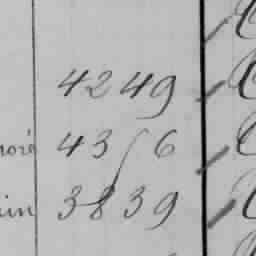 4249
noré 4356
in 3839